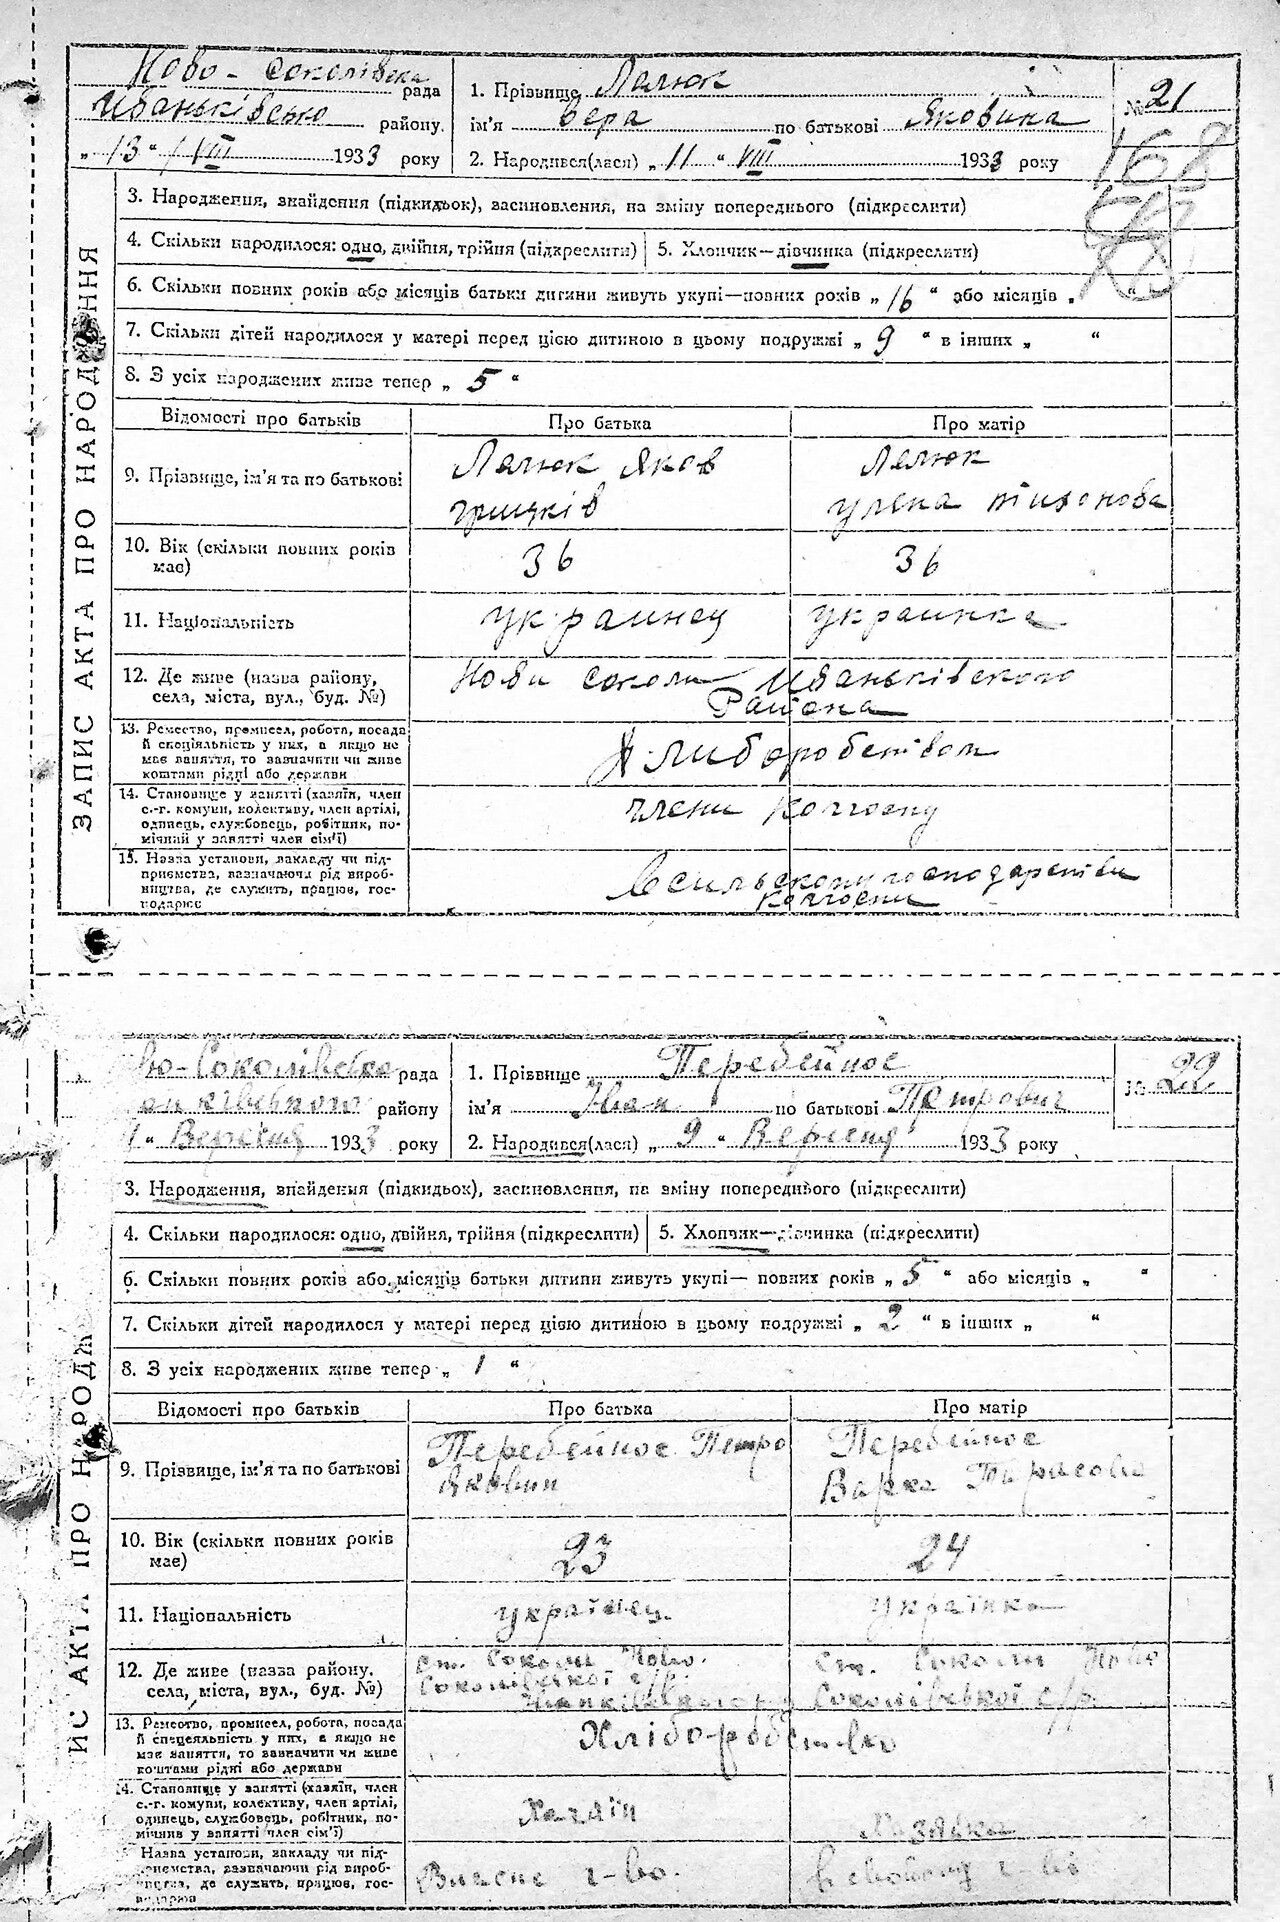 Ново-Соколівська рада
Иваньківського району.
„ 13 “ / VIII 1933 року
1. Прізвище Лелюк
ім'я Вера по батькові Яковина
2. Народився(лася) „ 11 “ VIII 1933 року
№ 21
168
ЗАПИС АКТА ПРО НАРОДЖЕННЯ
3. Народження, знайдення (підкидьок), засиновлення, на зміну попереднього (підкреслити)
4. Скільки народилося: одно, двійня, трійня (підкреслити)
5. Хлопчик—дівчинка (підкреслити)
6. Скільки повних років або місяців батьки дитини живуть укупі—повних років „ 16 “ або місяців „ “
7. Скільки дітей народилося у матері перед цією дитиною в цьому подружжі „ 9 “ в інших „ “
8. З усіх народжених живе тепер „ 5 “
Відомості про батьків
Про батька
Про матір
9. Прізвище, ім'я та по батькові
Лелюк Яков
грицків
Лелюк
улена тихонова
10. Вік (скільки повних років
має)
36
36
11. Національність
украинец
украинка
12. Де живе (назва району,
села, міста, вул., буд. №)
Нови соколи Иваньківского
Района
13. Ремество, промисел, робота, посада
й спеціяльність у них, а якщо не
має заняття, то зазначити чи живе
коштами рідні або держави
Хлиборобством
14. Становище у занятті (хазяїн, член
с.-г. комуни, колективу, член артілі,
одинець, службовець, робітник, по-
мічний у занятті член сім'ї)
члени колгоспу
15. Назва установи, закладу чи під-
приємства, зазначаючи рід вироб-
ництва, де служить, працює, гос-
подарює
В сильскому господарстви
колгоспи
во-Соколівська рада
ньківського району
“ Вересня 1933 року
1. Прізвище Перебейнос
ім'я Іван по батькові Петрович
2. Народився(лася) „ 9 “ Вересня 1933 року
№ 22
ИС АКТА ПРО НАРОДЖ
3. Народження, знайдення (підкидьок), засиновлення, на зміну попереднього (підкреслити)
4. Скільки народилося: одно, двійня, трійня (підкреслити)
5. Хлопчик—дівчинка (підкреслити)
6. Скільки повних років або місяців батьки дитини живуть укупі— повних років „ 5 “ або місяців „ “
7. Скільки дітей народилося у матері перед цією дитиною в цьому подружжі „ 2 “ в інших „ “
8. З усіх народжених живе тепер „ 1 “
Відомості про батьків
Про батька
Про матір
9. Прізвище, ім'я та по батькові
Перебейнос Петро
Яковин
Перебейнос
Варка Тарасова
10. Вік (скільки повних років
має)
23
24
11. Національність
українец
українка
12. Де живе (назва району,
села, міста, вул., буд. №)
ст. Соколи Ново
Соколівської с/р
ст. Соколи Ново
Соколівської с/р
13. Ремество, промисел, робота, посада
й спеціяльність у них, а якщо не
має заняття, то зазначити чи живе
коштами рідні або держави
Хліборобство
14. Становище у занятті (хазяїн, член
с.-г. комуни, колективу, член артілі,
одинець, службовець, робітник, по-
мічник у занятті член сім'ї)
Хазяїн
Хазяйка
Назва установи, закладу чи під-
приємства, зазначаючи рід вироб-
ництва, де служить, працює, гос-
подарює
Власне г-во.
В своєму г-ві